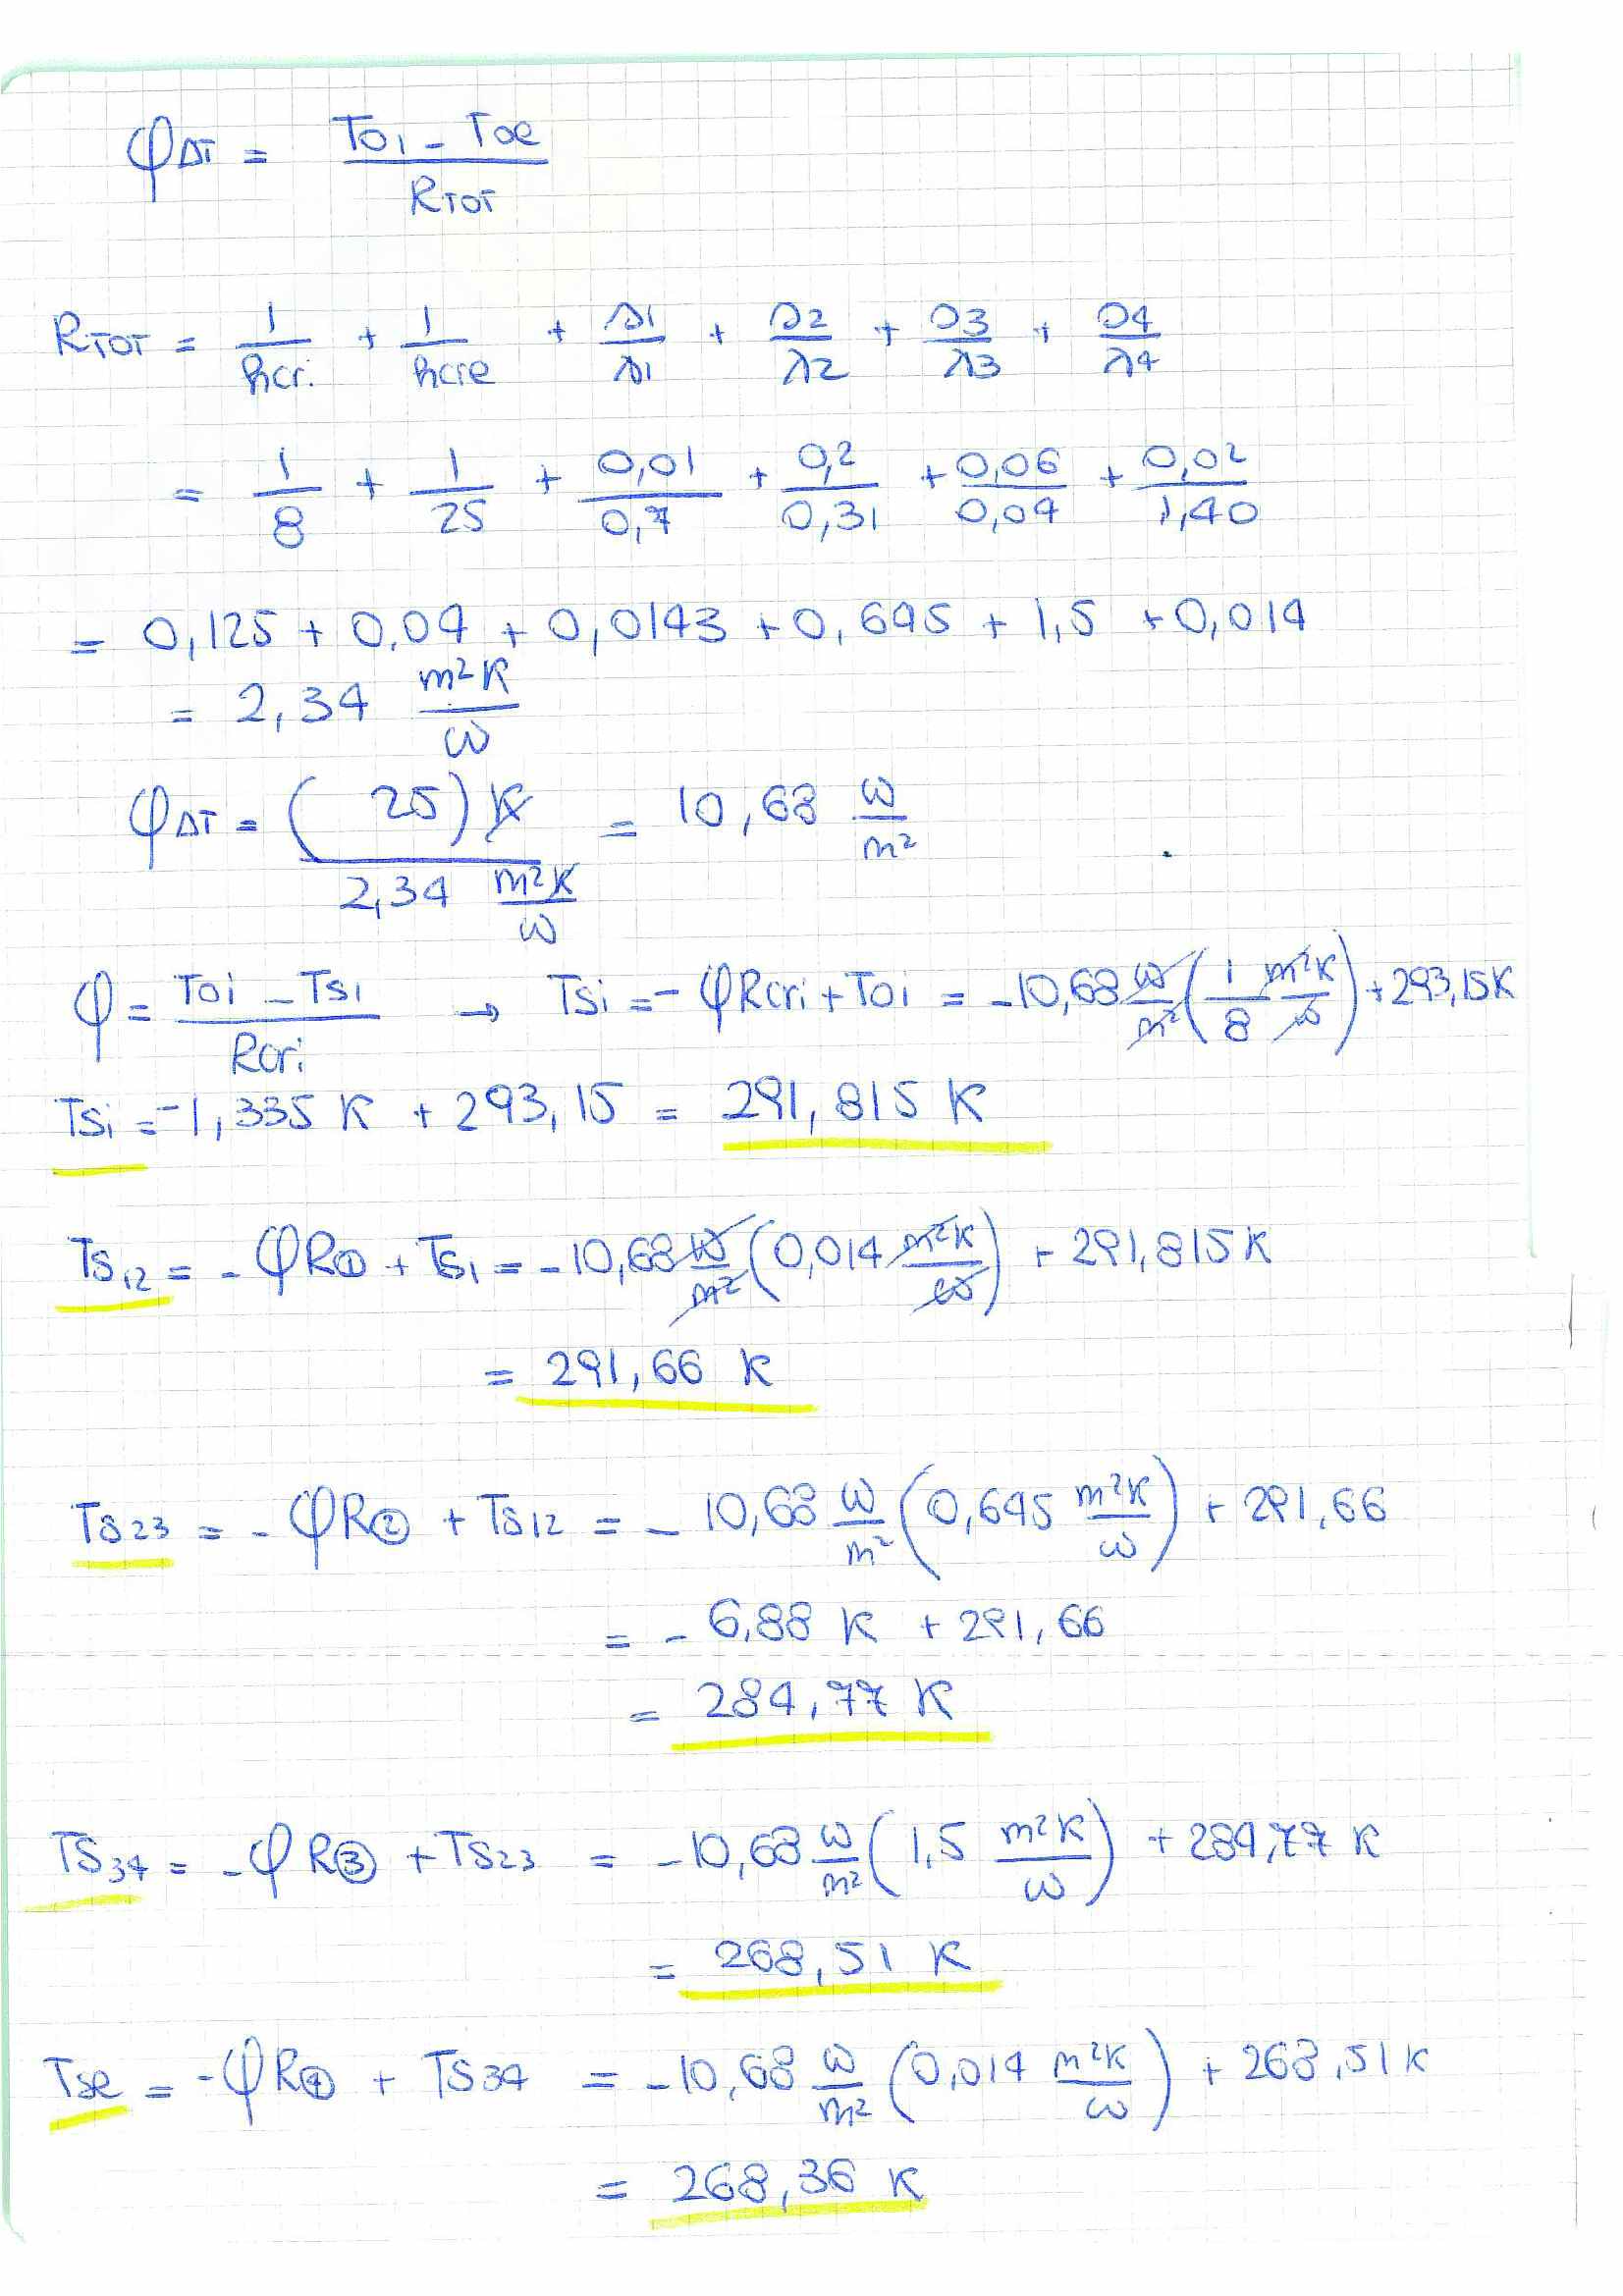 φΔT = (Toi - Toe) / RTOT
RTOT = 1/hcri + 1/hcre + s1/λ1 + s2/λ2 + s3/λ3 + s4/λ4
= 1/8 + 1/25 + 0,01/0,7 + 0,2/0,31 + 0,06/0,04 + 0,02/1,40
= 0,125 + 0,04 + 0,0143 + 0,645 + 1,5 + 0,014
= 2,34 m²K/W
φΔT = (25) K / 2,34 m²K/W = 10,68 W/m²
φ = (Toi - Tsi) / Rcri → Tsi = - φRcri + Toi = -10,68 W/m² (1/8 m²K/W) + 293,15K
Tsi = -1,335 K + 293,15 = 291,815 K
Ts12 = - φR① + Tsi = -10,68 W/m² (0,014 m²K/W) + 291,815K
= 291,66 K
Ts23 = - φR② + Ts12 = - 10,68 W/m² (0,645 m²K/W) + 291,66
= - 6,88 K + 291,66
= 284,77 K
TS34 = -φR③ + TS23 = -10,68 W/m² (1,5 m²K/W) + 284,77 K
= 268,51 K
Tse = -φR④ + TS34 = -10,68 W/m² (0,014 m²K/W) + 268,51K
= 268,36 K